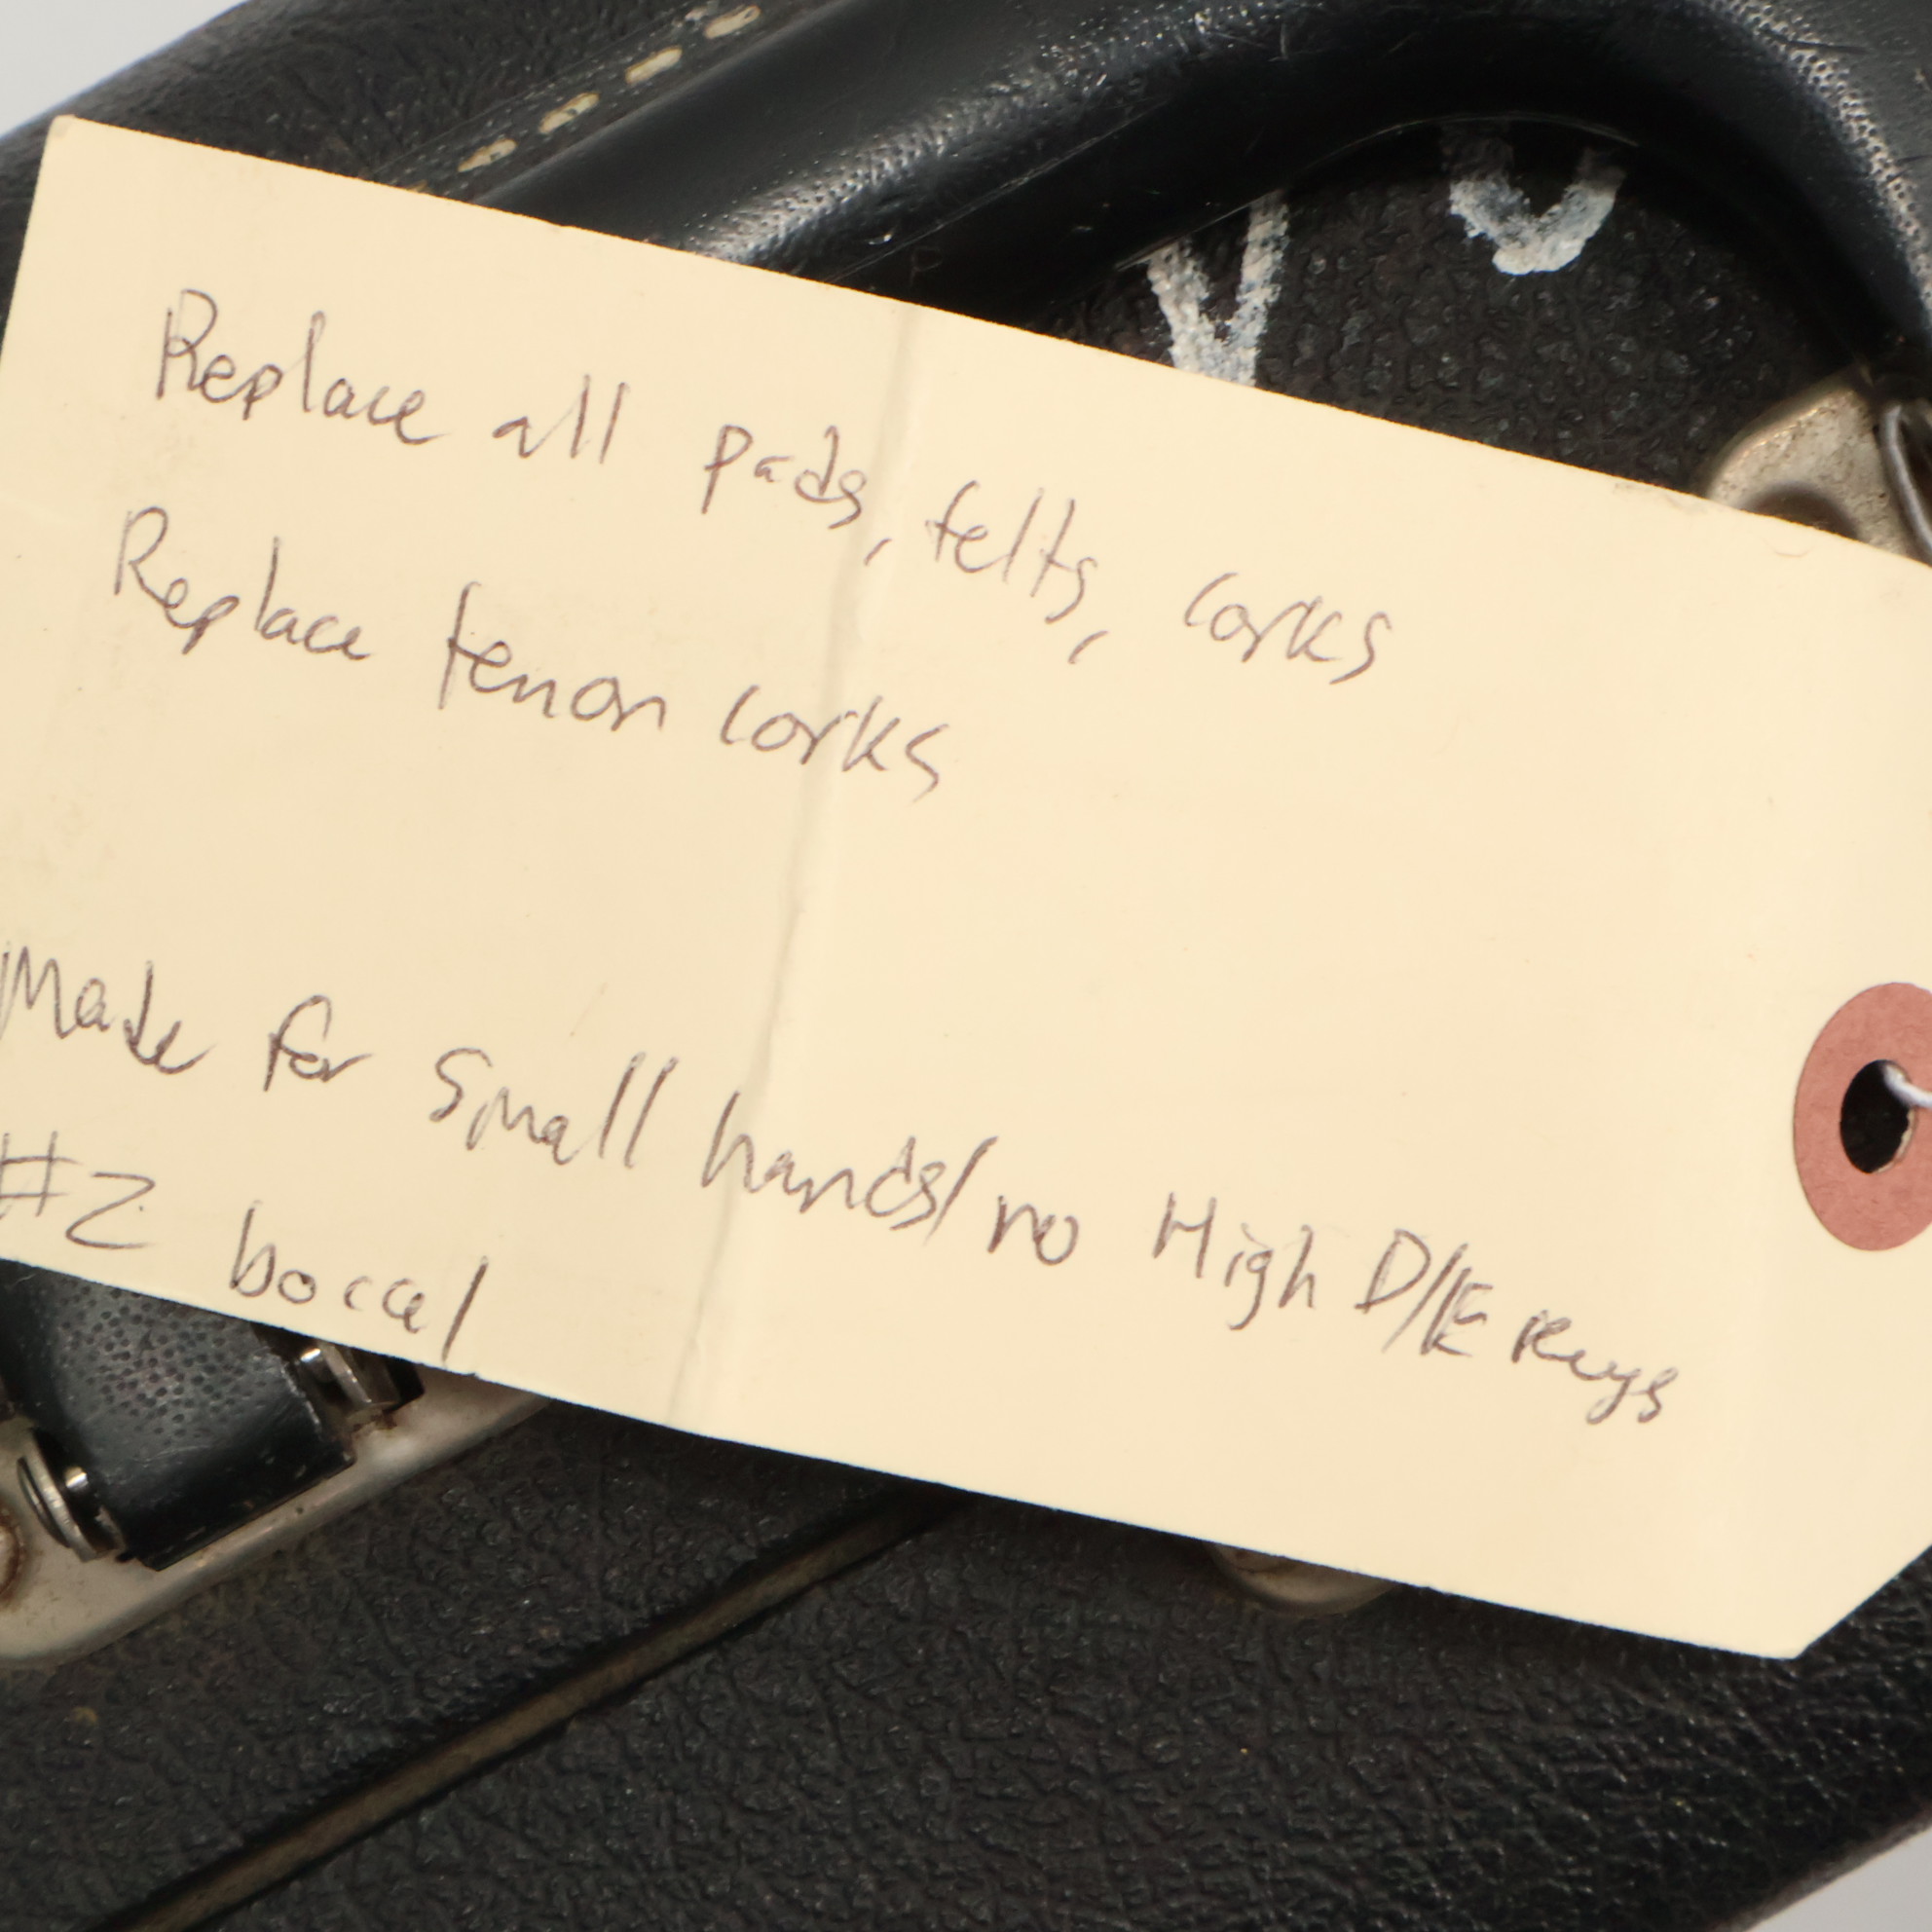 Replace all pads, felts, corks
Replace tenon corks
Made for small hands/no High D/E keys
#2 bocal